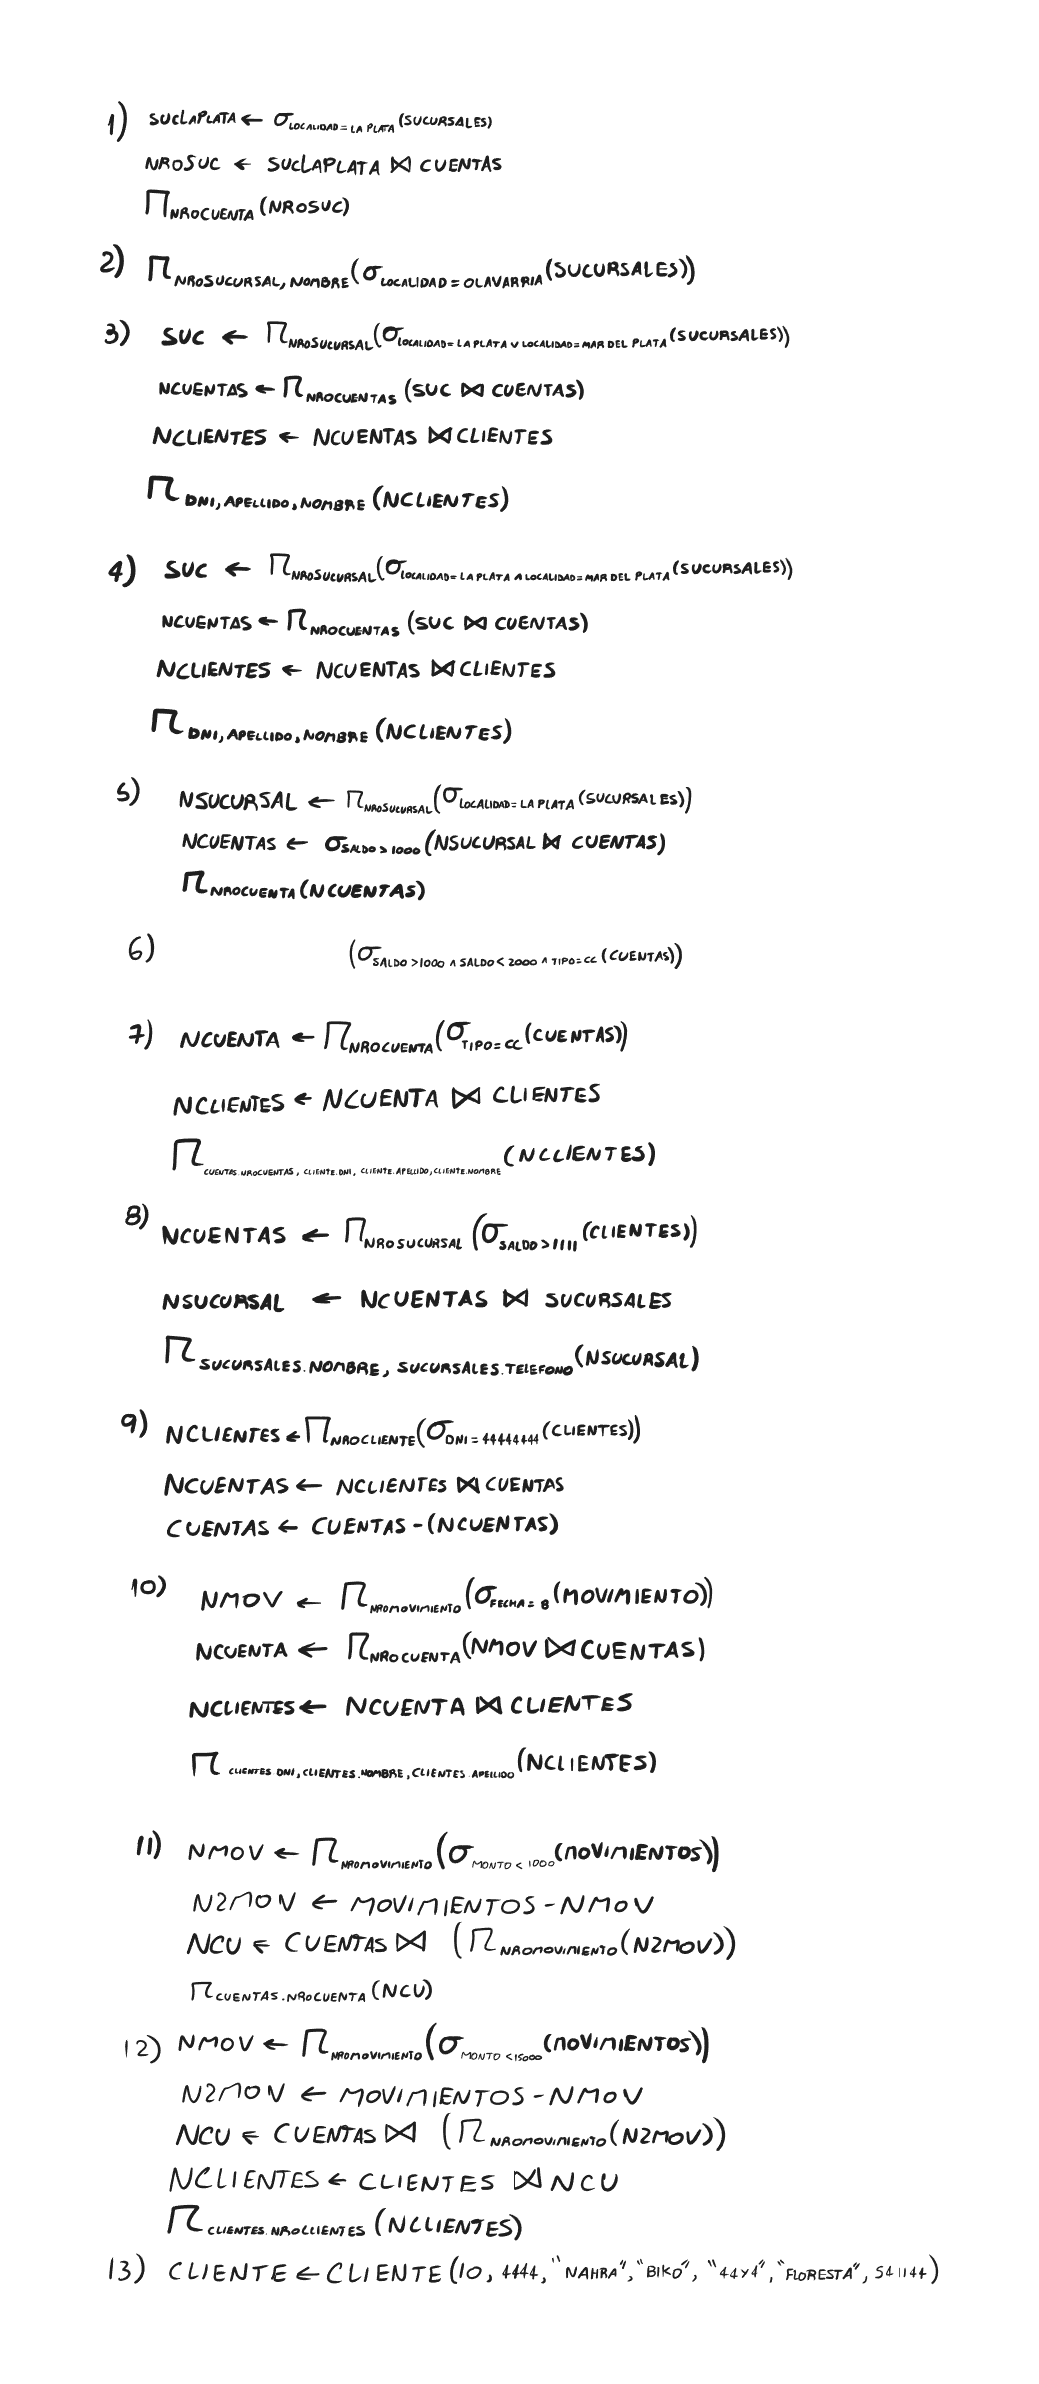 1) SUCLAPLATA ← σ LOCALIDAD = LA PLATA (SUCURSALES)
NROSUC ← SUCLAPLATA ⋈ CUENTAS
Π NROCUENTA (NROSUC)
2) Π NROSUCURSAL, NOMBRE (σ LOCALIDAD = OLAVARRIA (SUCURSALES))
3) SUC ← Π NROSUCURSAL (σ LOCALIDAD = LA PLATA ∨ LOCALIDAD = MAR DEL PLATA (SUCURSALES))
NCUENTAS ← Π NROCUENTAS (SUC ⋈ CUENTAS)
NCLIENTES ← NCUENTAS ⋈ CLIENTES
Π DNI, APELLIDO, NOMBRE (NCLIENTES)
4) SUC ← Π NROSUCURSAL (σ LOCALIDAD = LA PLATA ∧ LOCALIDAD = MAR DEL PLATA (SUCURSALES))
NCUENTAS ← Π NROCUENTAS (SUC ⋈ CUENTAS)
NCLIENTES ← NCUENTAS ⋈ CLIENTES
Π DNI, APELLIDO, NOMBRE (NCLIENTES)
5) NSUCURSAL ← Π NROSUCURSAL (σ LOCALIDAD = LA PLATA (SUCURSALES))
NCUENTAS ← σ SALDO > 1000 (NSUCURSAL ⋈ CUENTAS)
Π NROCUENTA (NCUENTAS)
6) (σ SALDO > 1000 ∧ SALDO < 2000 ∧ TIPO = CC (CUENTAS))
7) NCUENTA ← Π NROCUENTA (σ TIPO = CC (CUENTAS))
NCLIENTES ← NCUENTA ⋈ CLIENTES
Π CUENTAS.NROCUENTAS, CLIENTE.DNI, CLIENTE.APELLIDO, CLIENTE.NOMBRE (NCLIENTES)
8) NCUENTAS ← Π NROSUCURSAL (σ SALDO > 1111 (CLIENTES))
NSUCURSAL ← NCUENTAS ⋈ SUCURSALES
Π SUCURSALES.NOMBRE, SUCURSALES.TELEFONO (NSUCURSAL)
9) NCLIENTES ← Π NROCLIENTE (σ DNI = 44444444 (CLIENTES))
NCUENTAS ← NCLIENTES ⋈ CUENTAS
CUENTAS ← CUENTAS - (NCUENTAS)
10) NMOV ← Π NROMOVIMIENTO (σ FECHA = 8 (MOVIMIENTO))
NCUENTA ← Π NROCUENTA (NMOV ⋈ CUENTAS)
NCLIENTES ← NCUENTA ⋈ CLIENTES
Π CLIENTES.DNI, CLIENTES.NOMBRE, CLIENTES.APELLIDO (NCLIENTES)
11) NMOV ← Π NROMOVIMIENTO (σ MONTO < 1000 (MOVIMIENTOS))
N2MOV ← MOVIMIENTOS - NMOV
NCU ← CUENTAS ⋈ (Π NROMOVIMIENTO (N2MOV))
Π CUENTAS.NROCUENTA (NCU)
12) NMOV ← Π NROMOVIMIENTO (σ MONTO < 15000 (MOVIMIENTOS))
N2MOV ← MOVIMIENTOS - NMOV
NCU ← CUENTAS ⋈ (Π NROMOVIMIENTO (N2MOV))
NCLIENTES ← CLIENTES ⋈ NCU
Π CLIENTES.NROCLIENTES (NCLIENTES)
13) CLIENTE ← CLIENTE (10, 4444, "NAHRA", "BIKO", "44y4", "FLORESTA", 541144)